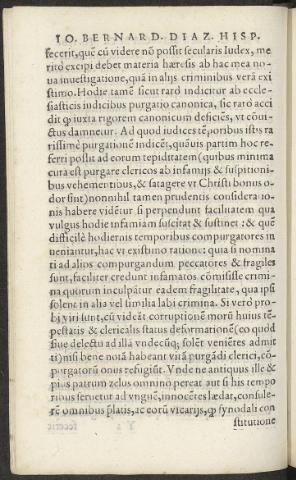 IO. BERNARD. DIAZ. HISP.
fecerit, quẽ cũ videre nõ possit secularis Iudex, me
rito excipi debet materia hæresis ab hac mea no-
ua inuestigatione, quã in alijs criminibus verã exi
stimo. Hodie tamẽ sicut rarò indicitur ab eccle-
siasticis iudicibus purgatio canonica, sic rarò acci
dit ꝙ iuxta rigorem canonicum deficiẽs, vt cõui-
ctus damnetur. Ad quod iudices tẽporibus istis ra
rissimè purgationẽ indicẽt, quãuis partim hoc re-
ferri possit ad eorum tepiditatem (quibus minima
cura est purgare clericos ab infamijs & suspitioni-
bus vehementibus, & satagere vt Christi bonus o-
dor sint) nonnihil tamen prudentis considera io-
nis habere vidẽtur si perpendunt facilitatem qua
vulgus hodie infamiam suscitat & sustinet: & quẽ
difficilè hodiernis temporibus compurgatores in
ueniantur, hac vt existimo ratione: quia si nomina
ti ad alios compurgandum peccatores & fragiles
sunt, faciliter credunt infamatos cõmisisse crimi-
na quorum inculpãtur eadem fragilitate, qua ipsi
solent in alia vel similia labi crimina. Si verò pro-
bi viri sunt, cũ videãt corruptionẽ morũ huius tẽ-
pestatis & clericalis status deformationẽ (eo quod
siue delectu ad illã vndecũq; solẽt veniẽtes admit
ti) nisi bene notã habeant vitã purgãdi clerici, cõ-
purgatorũ onus refugiũt. Vnde ne antiquus ille &
pius patrum zelus omnino pereat aut si his tempo
ribus seruetur ad vnguẽ, innocẽtes lædat, consule-
rẽ omnibus p̃latis, ac eorũ vicarijs, ꝙ synodali con
stitutione